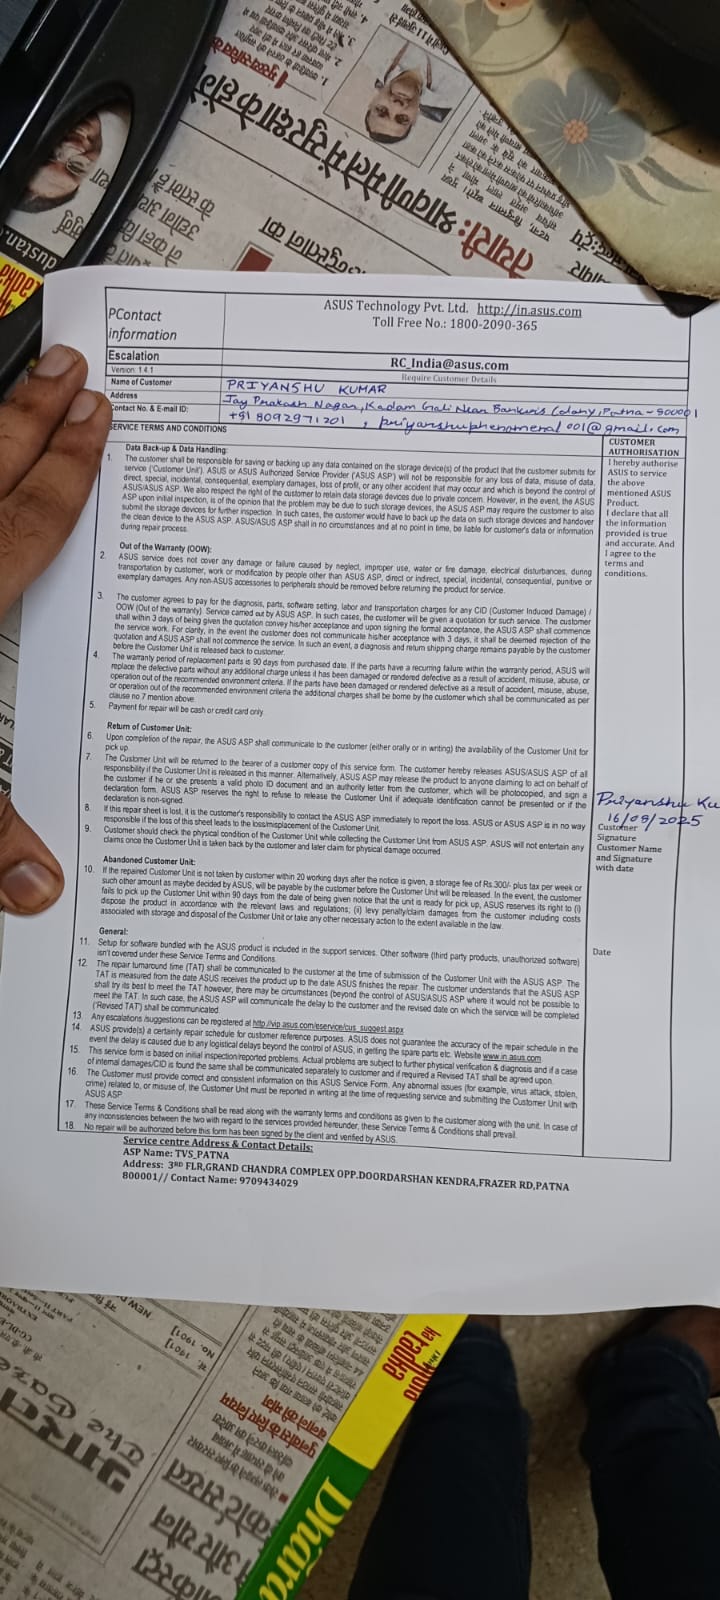 तैयारी: श्रावणी मेले में सुरक्षा के होंगे
PContact information
ASUS Technology Pvt. Ltd. http://in.asus.com
Toll Free No.: 1800-2090-365
Escalation
RC_India@asus.com
Version 1.4.1
Require Customer Details
Name of Customer PRIYANSHU KUMAR
Address Jay Prakash Nagar, Kadam Gali Near Bankers Colony, Patna - 800001
Contact No. & E-mail ID: +91 8092971201 , priyanshuphenomenal001@gmail.com
SERVICE TERMS AND CONDITIONS
CUSTOMER AUTHORISATION
I hereby authorise
ASUS to service
the above
mentioned ASUS
Product.
I declare that all
the information
provided is true
and accurate. And
I agree to the
terms and
conditions.
Data Back-up & Data Handling:
1. The customer shall be responsible for saving or backing up any data contained on the storage device(s) of the product that the customer submits for
service ('Customer Unit'). ASUS or ASUS Authorized Service Provider ('ASUS ASP') will not be responsible for any loss of data, misuse of data,
direct, special, incidental, consequential, exemplary damages, loss of profit, or any other accident that may occur and which is beyond the control of
ASUS/ASUS ASP. We also respect the right of the customer to retain data storage devices due to private concern. However, in the event, the ASUS
ASP upon initial inspection, is of the opinion that the problem may be due to such storage devices, the ASUS ASP may require the customer to also
submit the storage devices for further inspection. In such cases, the customer would have to back up the data on such storage devices and handover
the clean device to the ASUS ASP. ASUS/ASUS ASP shall in no circumstances and at no point in time, be liable for customer's data or information
during repair process.
Out of the Warranty (OOW):
2. ASUS service does not cover any damage or failure caused by neglect, improper use, water or fire damage, electrical disturbances, during
transportation by customer, work or modification by people other than ASUS ASP, direct or indirect, special, incidental, consequential, punitive or
exemplary damages. Any non-ASUS accessories to peripherals should be removed before returning the product for service.
3. The customer agrees to pay for the diagnosis, parts, software setting, labor and transportation charges for any CID (Customer Induced Damage) /
OOW (Out of the warranty). Service carried out by ASUS ASP. In such cases, the customer will be given a quotation for such service. The customer
shall within 3 days of being given the quotation convey his/her acceptance and upon signing the formal acceptance, the ASUS ASP shall commence
the service work. For clarity, in the event the customer does not communicate his/her acceptance with 3 days, it shall be deemed rejection of the
quotation and ASUS ASP shall not commence the service. In such an event, a diagnosis and return shipping charge remains payable by the customer
before the Customer Unit is released back to customer.
4. The warranty period of replacement parts is 90 days from purchased date. If the parts have a recurring failure within the warranty period, ASUS will
replace the defective parts without any additional charge unless it has been damaged or rendered defective as a result of accident, misuse, abuse, or
operation out of the recommended environment criteria. If the parts have been damaged or rendered defective as a result of accident, misuse, abuse,
or operation out of the recommended environment criteria the additional charges shall be borne by the customer which shall be communicated as per
clause no 7 mention above.
5. Payment for repair will be cash or credit card only.
Return of Customer Unit:
6. Upon completion of the repair, the ASUS ASP shall communicate to the customer (either orally or in writing) the availability of the Customer Unit for
pick up.
7. The Customer Unit will be returned to the bearer of a customer copy of this service form. The customer hereby releases ASUS/ASUS ASP of all
responsibility if the Customer Unit is released in this manner. Alternatively, ASUS ASP may release the product to anyone claiming to act on behalf of
the customer if he or she presents a valid photo ID document and an authority letter from the customer, which will be photocopied, and sign a
declaration form. ASUS ASP reserves the right to refuse to release the Customer Unit if adequate identification cannot be presented or if the
declaration is non-signed.
8. If this repair sheet is lost, it is the customer's responsibility to contact the ASUS ASP immediately to report the loss. ASUS or ASUS ASP is in no way
responsible if the loss of this sheet leads to the loss/misplacement of the Customer Unit.
9. Customer should check the physical condition of the Customer Unit while collecting the Customer Unit from ASUS ASP. ASUS will not entertain any
claims once the Customer Unit is taken back by the customer and later claim for physical damage occurred.
Priyanshu Ku
16/09/2025
Customer
Signature
Customer Name
and Signature
with date
Abandoned Customer Unit:
10. If the repaired Customer Unit is not taken by customer within 20 working days after the notice is given, a storage fee of Rs.300/- plus tax per week or
such other amount as maybe decided by ASUS, will be payable by the customer before the Customer Unit will be released. In the event, the customer
fails to pick up the Customer Unit within 90 days from the date of being given notice that the unit is ready for pick up, ASUS reserves its right to (i)
dispose the product in accordance with the relevant laws and regulations; (ii) levy penalty/claim damages from the customer including costs
associated with storage and disposal of the Customer Unit or take any other necessary action to the extent available in the law.
General:
Date
11. Setup for software bundled with the ASUS product is included in the support services. Other software (third party products, unauthorized software)
isn't covered under these Service Terms and Conditions.
12. The repair turnaround time (TAT) shall be communicated to the customer at the time of submission of the Customer Unit with the ASUS ASP. The
TAT is measured from the date ASUS receives the product up to the date ASUS finishes the repair. The customer understands that the ASUS ASP
shall try its best to meet the TAT however, there may be circumstances (beyond the control of ASUS/ASUS ASP where it would not be possible to
meet the TAT. In such case, the ASUS ASP will communicate the delay to the customer and the revised date on which the service will be completed
('Revised TAT') shall be communicated.
13. Any escalations /suggestions can be registered at http://vip.asus.com/eservice/cus_suggest.aspx
14. ASUS provide(s) a certainty repair schedule for customer reference purposes. ASUS does not guarantee the accuracy of the repair schedule in the
event the delay is caused due to any logistical delays beyond the control of ASUS, in getting the spare parts etc. Website www.in.asus.com
15. This service form is based on initial inspection/reported problems. Actual problems are subject to further physical verification & diagnosis and if a case
of internal damages/CID is found the same shall be communicated separately to customer and if required a Revised TAT shall be agreed upon.
16. The Customer must provide correct and consistent information on this ASUS Service Form. Any abnormal issues (for example, virus attack, stolen,
crime) related to, or misuse of, the Customer Unit must be reported in writing at the time of requesting service and submitting the Customer Unit with
ASUS ASP
17. These Service Terms & Conditions shall be read along with the warranty terms and conditions as given to the customer along with the unit. In case of
any inconsistencies between the two with regard to the services provided hereunder, these Service Terms & Conditions shall prevail.
18. No repair will be authorized before this form has been signed by the client and verified by ASUS.
Service centre Address & Contact Details:
ASP Name: TVS_PATNA
Address: 3RD FLR,GRAND CHANDRA COMPLEX OPP.DOORDARSHAN KENDRA,FRAZER RD,PATNA
800001// Contact Name: 9709434029
No. 1901]
Dhara